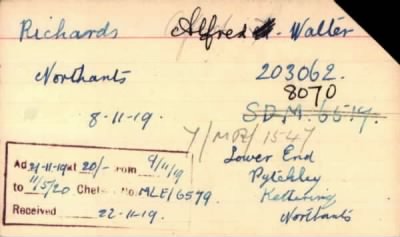 Richards Alfred Walter
Northants 203062.
8070
8-11-19. S.D.M. 6517.
7/MR/1547
Lower End
Pytchley
Kettering
Northants
Ad 31-11-19 at 20/- from 9/11/19
to 11/5/20 Chel No. MLE/6579
Received 22-11-19.